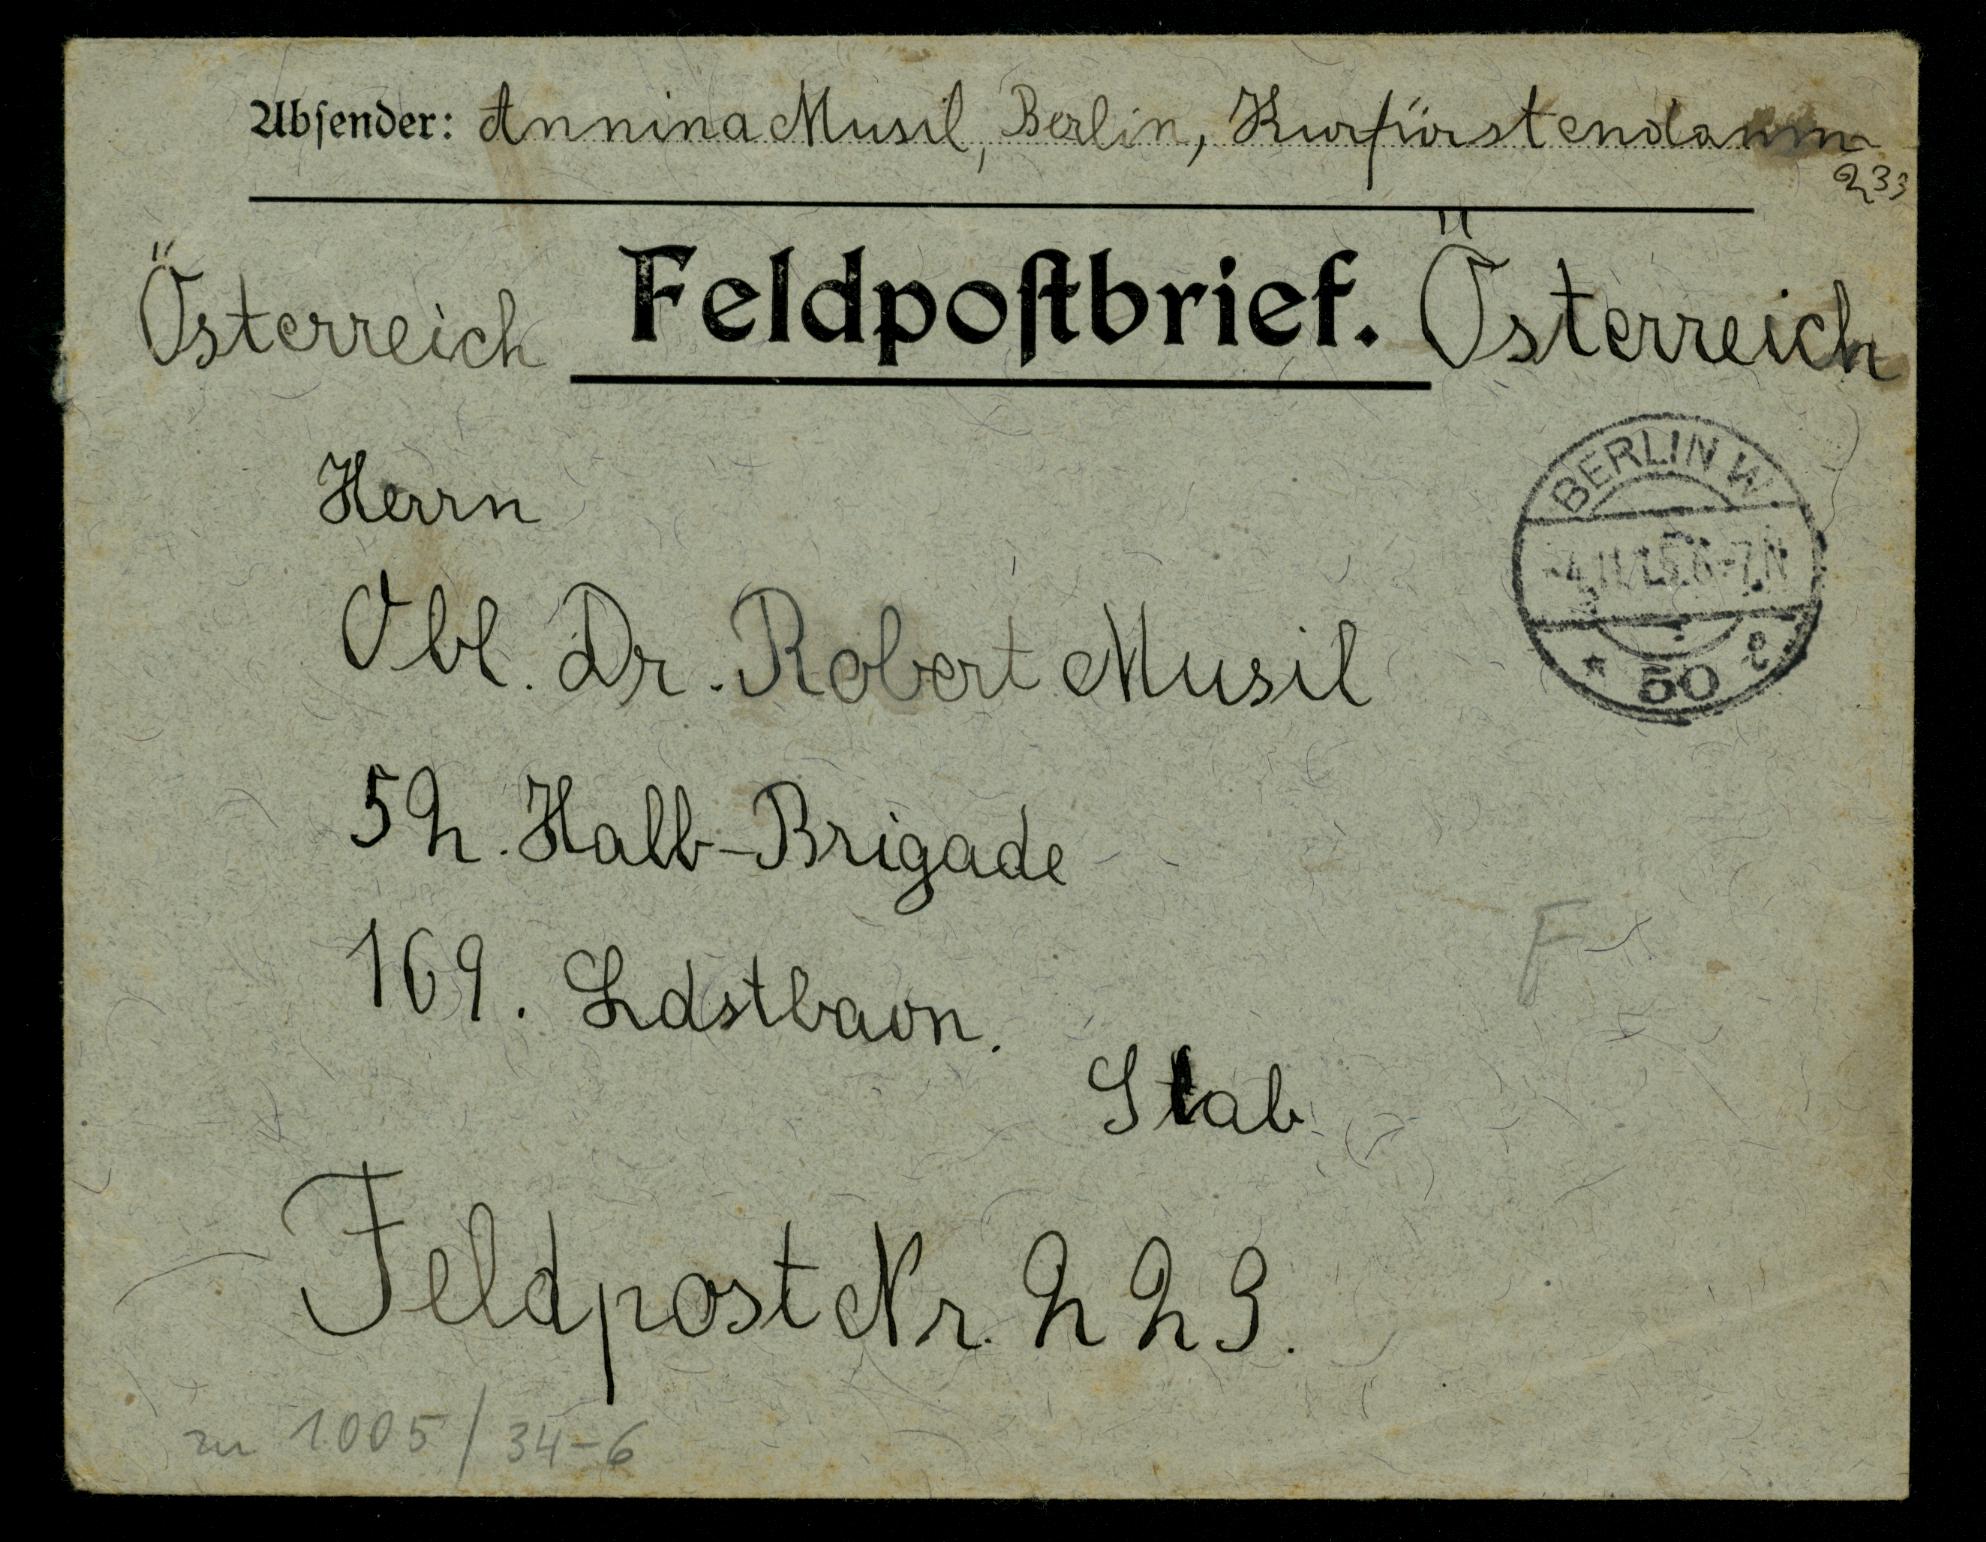 Absender: Annina Musil, Berlin, Kurfürstendamm
233
Österreich Feldpostbrief. Österreich
BERLIN W
4.11.15.6-7N
* 50 e
Herrn
Obl. Dr. Robert Musil
52. Halb-Brigade
169. Ldstbaon.
F
Stab
Feldpost Nr. 223.
zu 1005/34-6